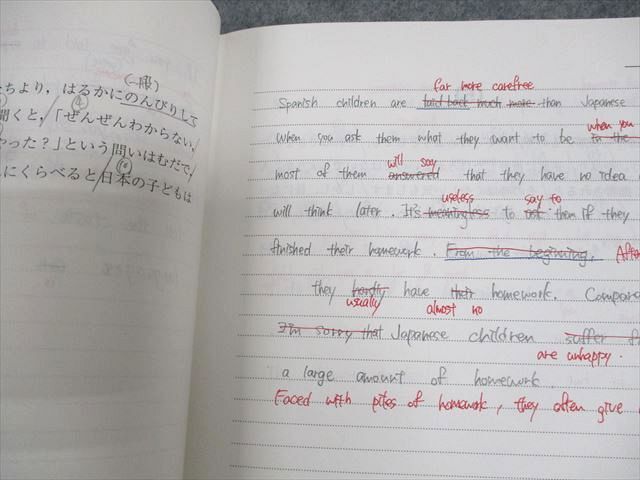 (一般)
ちより,はるかにのんびりして
聞くと,「ぜんぜんわからない,
やった?」という問いはむだで,
にくらべると日本の子どもは
far more carefree
Spanish children are laid back much more than Japanese
when you
when you ask them what they want to be in the
will say
most of them answered that they have no idea
useless say to
will think later. It's meaningless to ask them if they
finished their homework. From the beginning, Afte
they hardly have their homework. Compare
usually almost no
I'm sorry that Japanese children suffer f
are unhappy.
a large amount of homework.
Faced with piles of homework, they often give